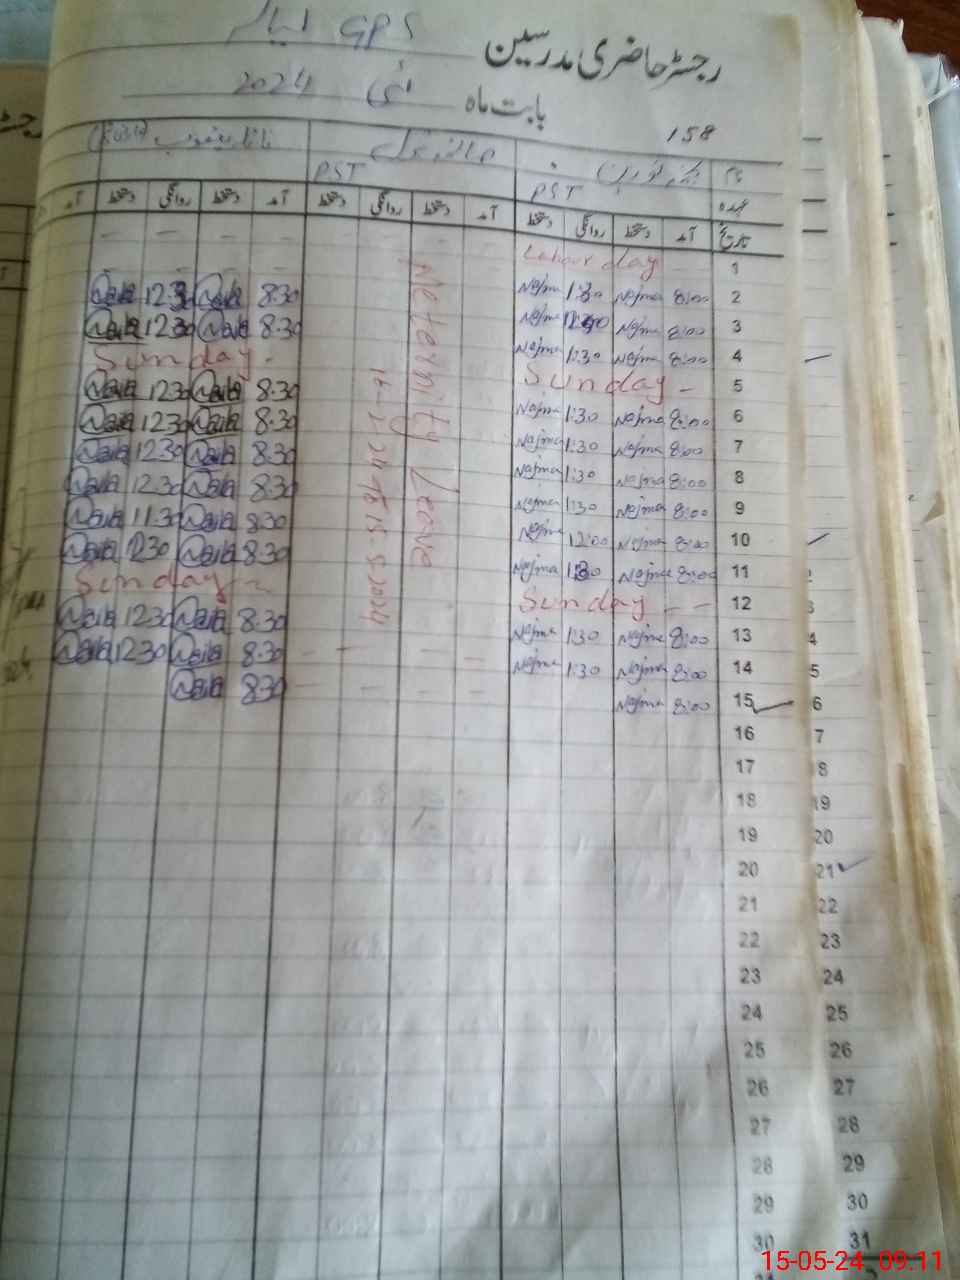 رجسٹر حاضری مدرسین GPS
بابت ماہ مئی 2024
158
نام
عہدہ PST PST
تاریخ آمد دستخط روانگی دستخط آمد دستخط روانگی دستخط آمد دستخط روانگی دستخط آمد
1 Labour day
2 8:00 Najma 1:30 Najma 8.30 Naila 12.30 Naila
3 8:00 Najma Najma 8.30 Naila 12.30 Naila
4 8:00 Najma 1:30 Najma Sunday
5 Sunday 8.30 Naila 12.30 Naila
6 8:00 Najma 1:30 Najma 8.30 Naila 12.30 Naila
7 8:00 Najma 1:30 Najma 8.30 Naila 12.30 Naila
8 8:00 Najma 1:30 Najma 8.30 Naila 12.30 Naila
9 8:00 Najma 1:30 Najma 8.30 Naila 11.30 Naila
10 8:00 Najma 12:00 Najma 8.30 Naila 12.30 Naila
11 8:00 Najma 1:30 Najma Sunday
12 Sunday 8.30 Naila 12.30 Naila
13 8:00 Najma 1:30 Najma 8.30 Naila 12.30 Naila
14 8:00 Najma 1:30 Najma 8.30 Naila
15 8:00 Najma
Meternity Leave
15-5-2024
16
17
18
19
20
21
22
23
24
25
26
27
28
29
30
3
4
5
6
7
8
19
20
21
22
23
24
25
26
27
28
29
30
31
15-05-24 09:11